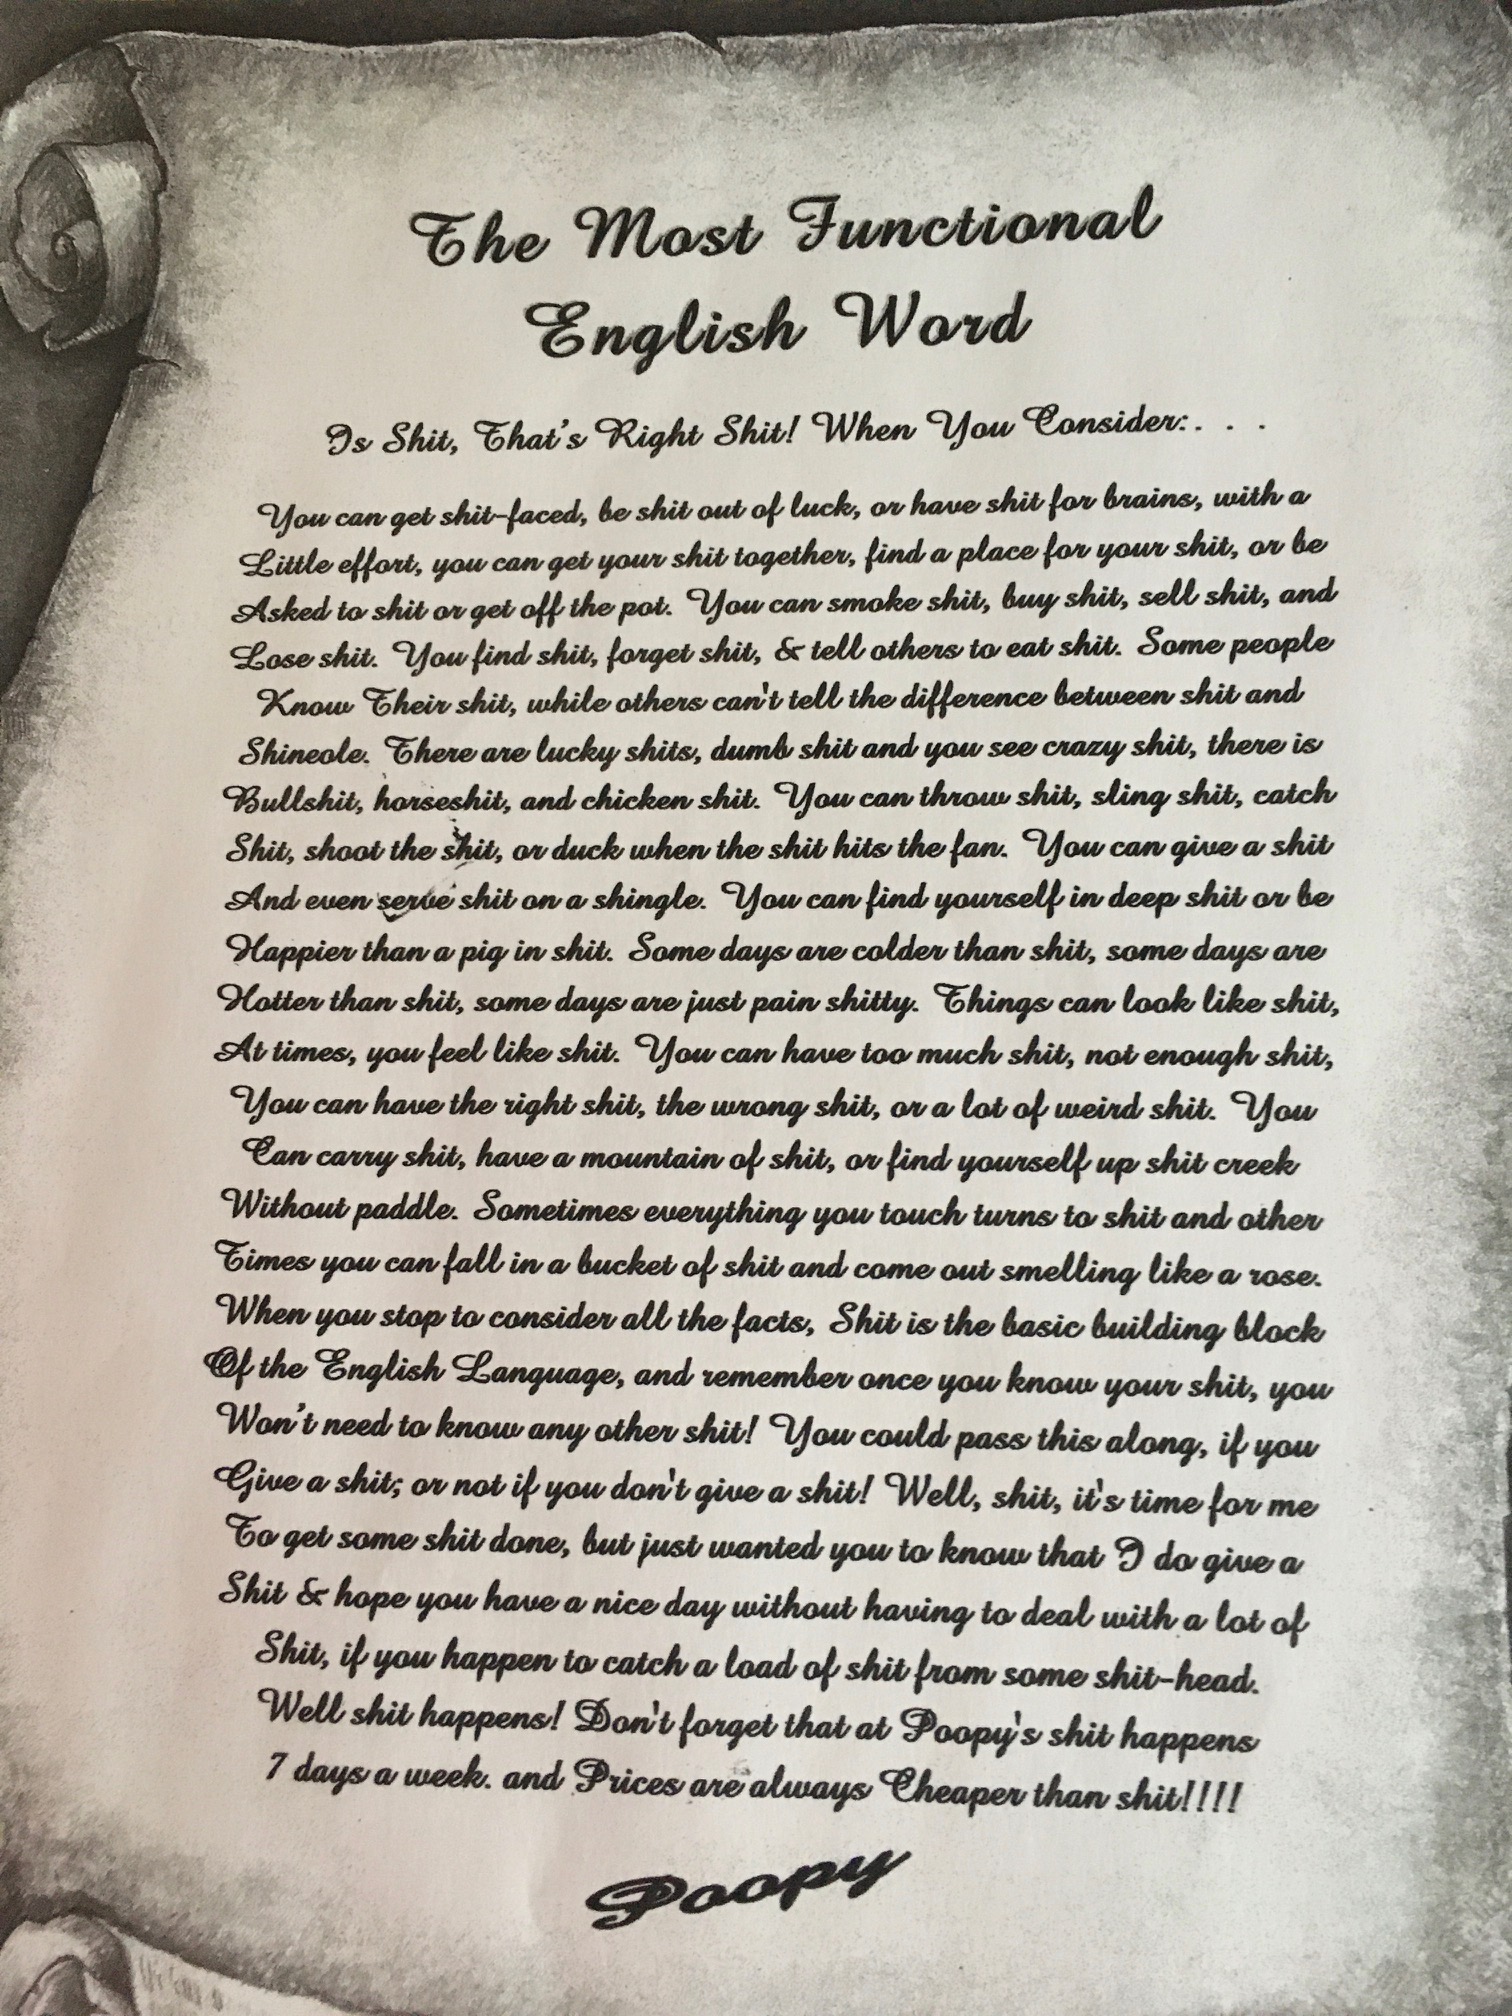 The Most Functional
English Word
Is Shit, That's Right Shit! When You Consider:. . .
You can get shit-faced, be shit out of luck, or have shit for brains, with a
Little effort, you can get your shit together, find a place for your shit, or be
Asked to shit or get off the pot. You can smoke shit, buy shit, sell shit, and
Lose shit. You find shit, forget shit, & tell others to eat shit. Some people
Know Their shit, while others can't tell the difference between shit and
Shineole. There are lucky shits, dumb shit and you see crazy shit, there is
Bullshit, horseshit, and chicken shit. You can throw shit, sling shit, catch
Shit, shoot the shit, or duck when the shit hits the fan. You can give a shit
And even serve shit on a shingle. You can find yourself in deep shit or be
Happier than a pig in shit. Some days are colder than shit, some days are
Hotter than shit, some days are just pain shitty. Things can look like shit,
At times, you feel like shit. You can have too much shit, not enough shit,
You can have the right shit, the wrong shit, or a lot of weird shit. You
Can carry shit, have a mountain of shit, or find yourself up shit creek
Without paddle. Sometimes everything you touch turns to shit and other
Times you can fall in a bucket of shit and come out smelling like a rose.
When you stop to consider all the facts, Shit is the basic building block
Of the English Language, and remember once you know your shit, you
Won't need to know any other shit! You could pass this along, if you
Give a shit; or not if you don't give a shit! Well, shit, it's time for me
To get some shit done, but just wanted you to know that I do give a
Shit & hope you have a nice day without having to deal with a lot of
Shit, if you happen to catch a load of shit from some shit-head.
Well shit happens! Don't forget that at Poopy's shit happens
7 days a week. and Prices are always Cheaper than shit!!!!
Poopy